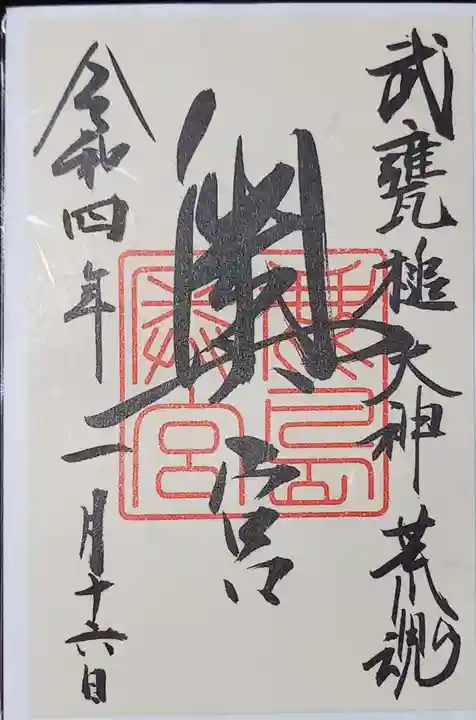 武甕槌大神 荒魂
奥宮
鹿島
奥宮
令和四年一月十六日